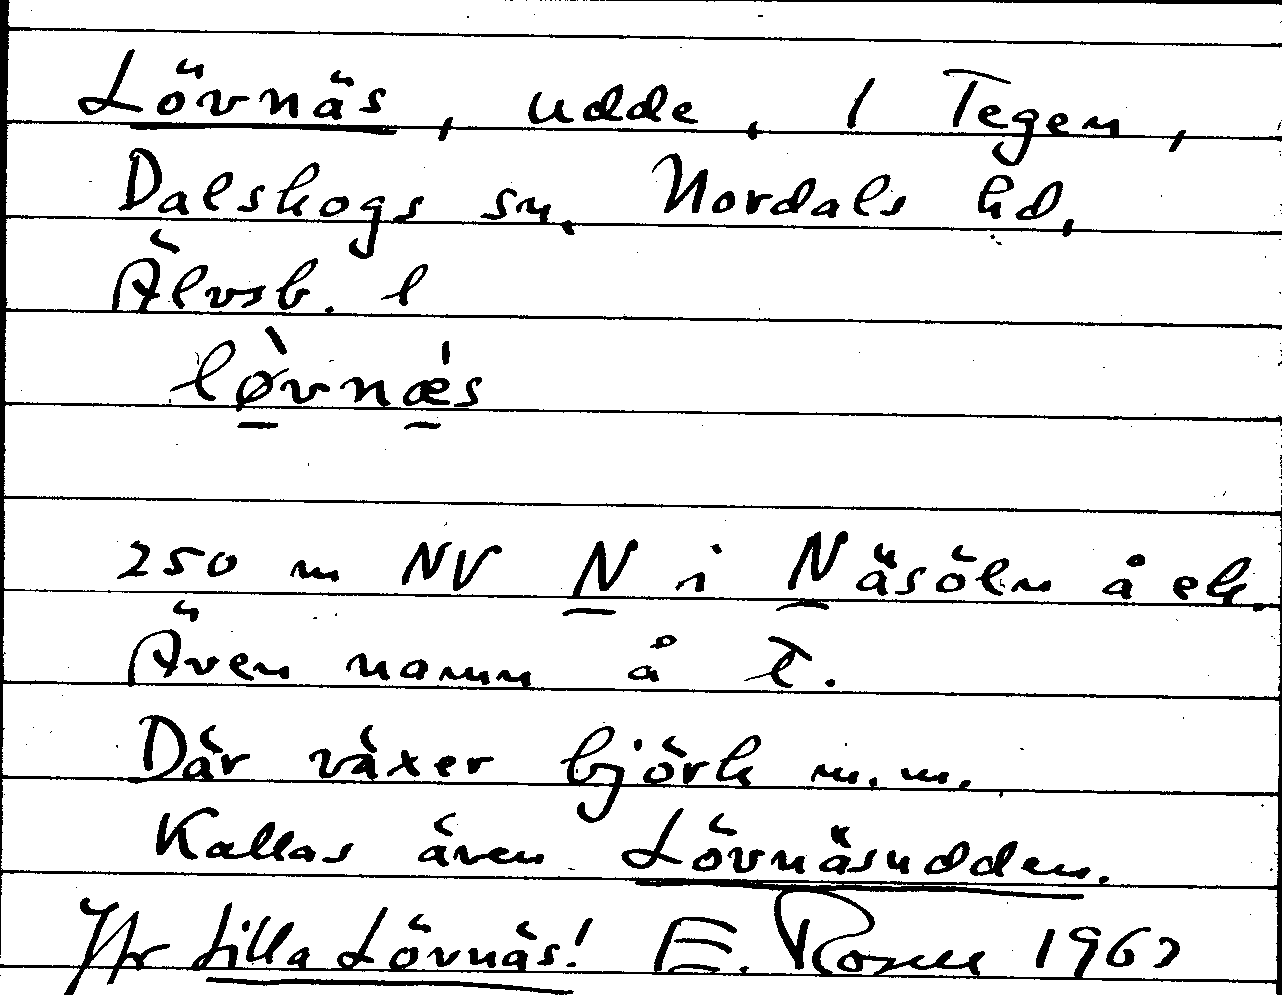 Lövnäs, udde, i Tegen,
Dalskogs sn, Nordals hd,
Älvsb. l
lø̀vnǽs
250 m NV N i Näsöln å ek.
Även namn å T.
Där växer björk m.m.
Kallas även Lövnäsudden.
Jfr Lilla Lövnäs! E. Rosell 1967